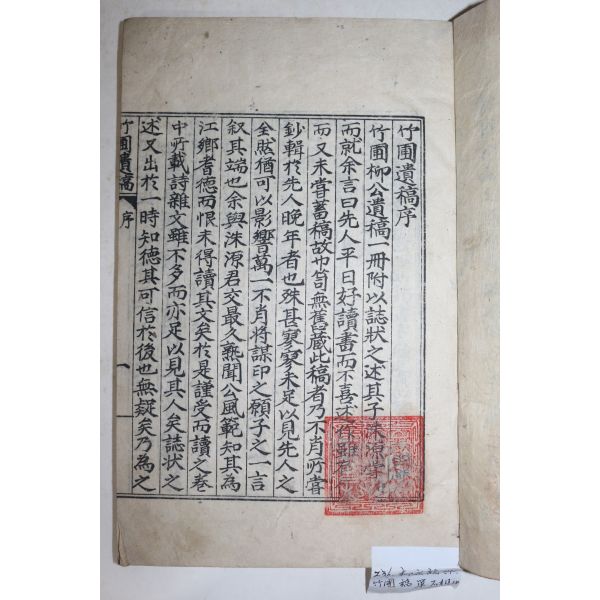 竹圃遺稿序
竹圃柳公遺稿一冊附以誌狀之述其子洙源
而就余言曰先人平日好讀書而不喜述作雖
而又未嘗蓄稿故巾笥無舊藏此稿者乃不肖所嘗
鈔輯於先人晚年者也殊甚寥寥未足以見先人之
全然猶可以影響萬一不肖將謀印之願子之一言
叙其端也余與洙源君交最久熟聞公風範知其為
江鄉耆德而恨未得讀其文矣於是謹受而讀之卷
中所載詩雜文雖不多而亦足以見其人矣誌狀之
述又出於一時知德其可信於後也無疑矣乃為之
竹圃遺稿
序
一